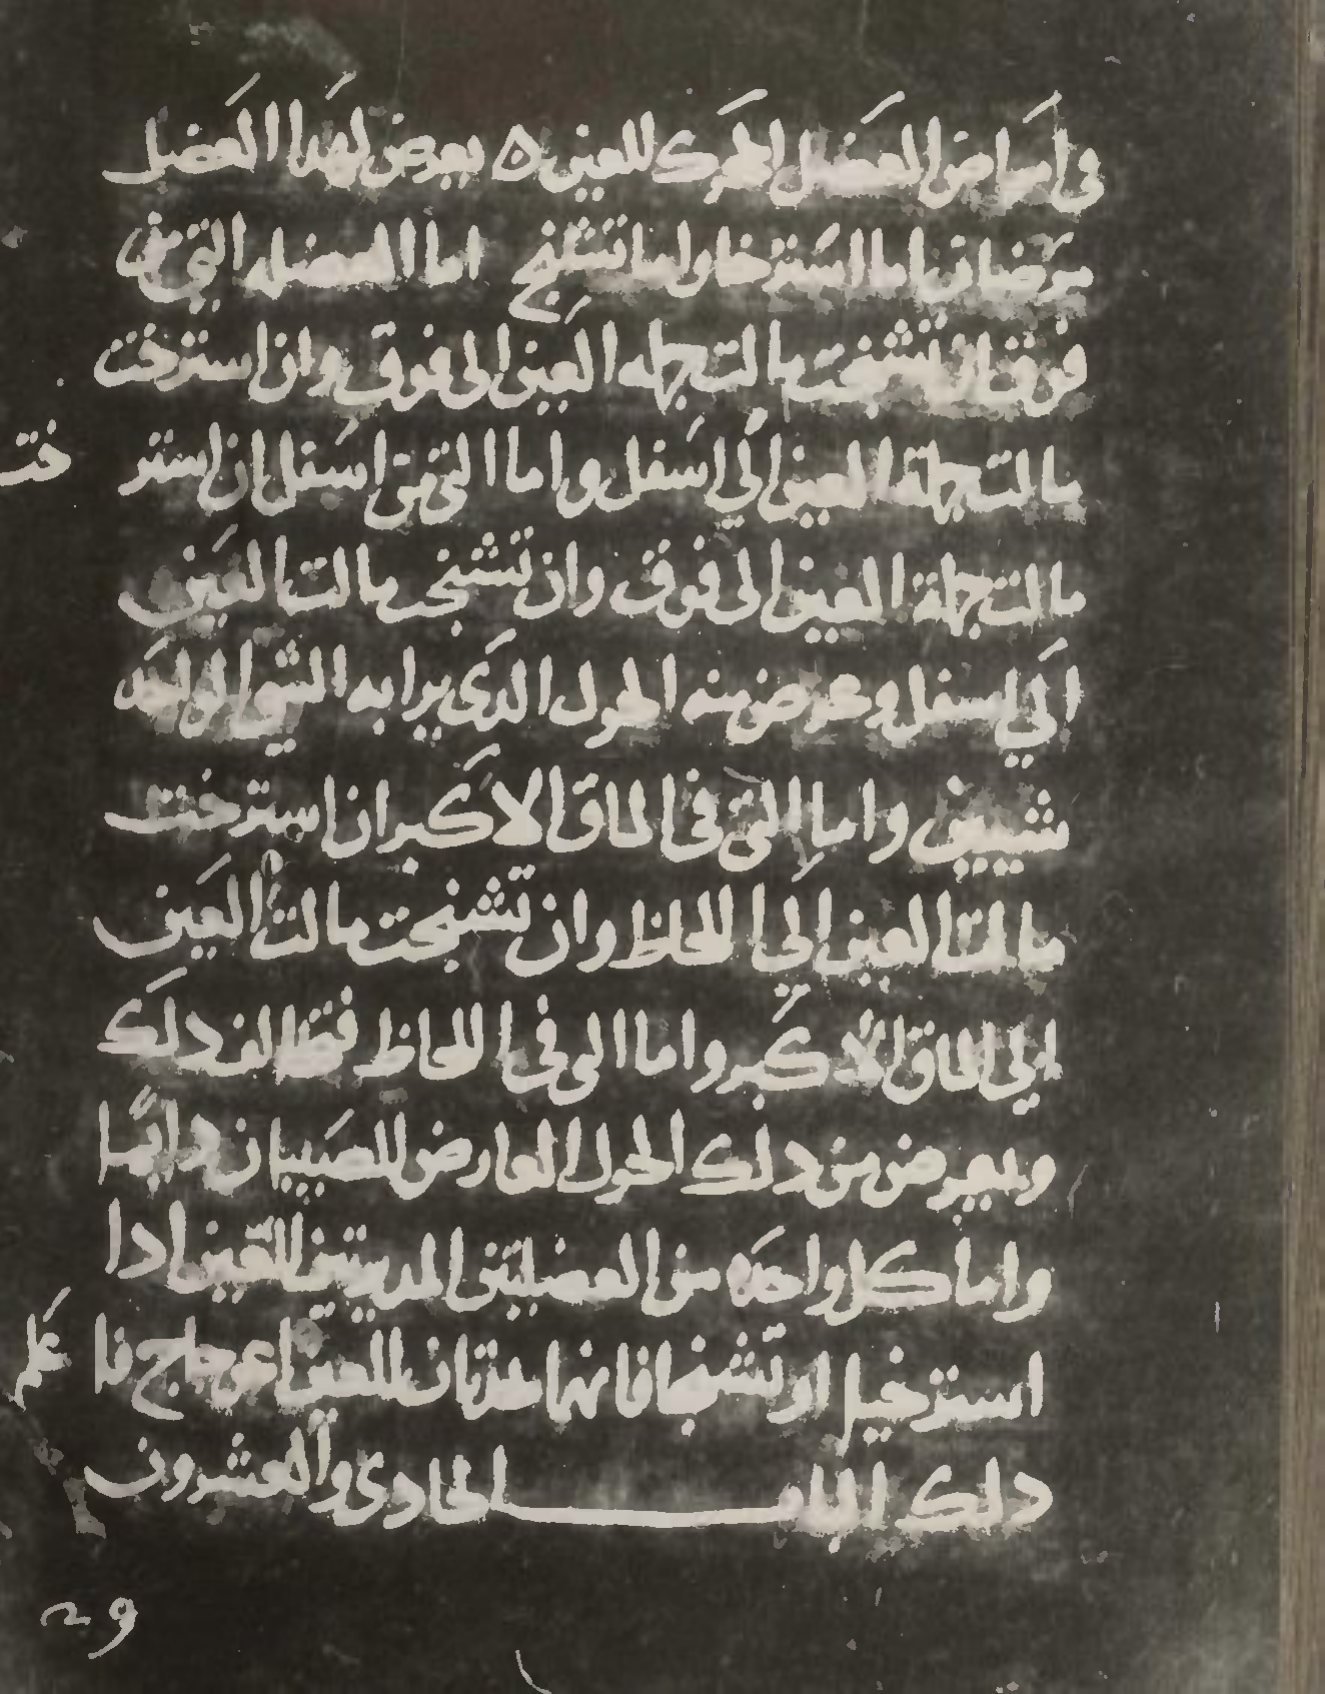 في امراض العضل المحرك للعين ه يعرض لهدا العضل
مرضان اما استرخا واما تشنج اما العضله التي من
فوق ان تشنجت مالت جمله العين الى فوق وان استرخت
مالت جملة العين الي اسفل واما التي من اسفل ان استر خت
مالت جملة العين الى فوق وان تشنجت مالت العين
الي اسفل وعرض منه الحول الدى يرا به الشي الواحد
شيين واما التي في الماق الاكبر ان استرخت
مالت العين الي اللحاظ وان تشنجت مالت العين
الي الماق الاكبر واما التي في اللحاظ دلك
ويعرض من دلك الحول العارض للصبيان دايما
واما كل واحده من العضلتين المديرتين للعين ادا
استرخيا او تشنجا فانهما يحدثان للعين اعوجاج فا علم
دلك البابــــــــ الحادى والعشرون
29